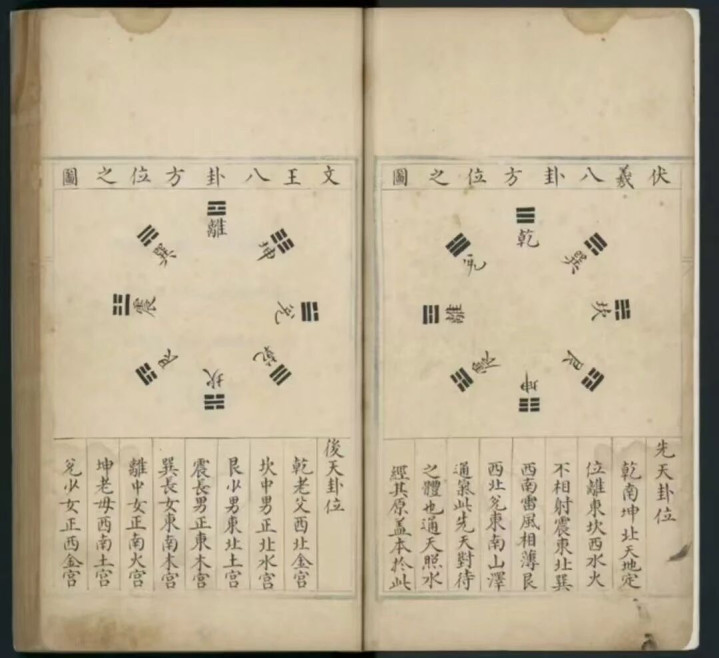 伏羲八卦方位之圖
乾
巽
坎
艮
坤
震
離
兌
先天卦位
乾南坤北天地定
位離東坎西水火
不相射震東北巽
西南雷風相薄艮
西北兌東南山澤
通氣此先天對待
之體也通天照水
經其原蓋本於此
文王八卦方位之圖
離
坤
兌
乾
坎
艮
震
巽
後天卦位
乾老父西北金宮
坎中男正北水宮
艮少男東北土宮
震長男正東木宮
巽長女東南木宮
離中女正南火宮
坤老母西南土宮
兌少女正西金宮